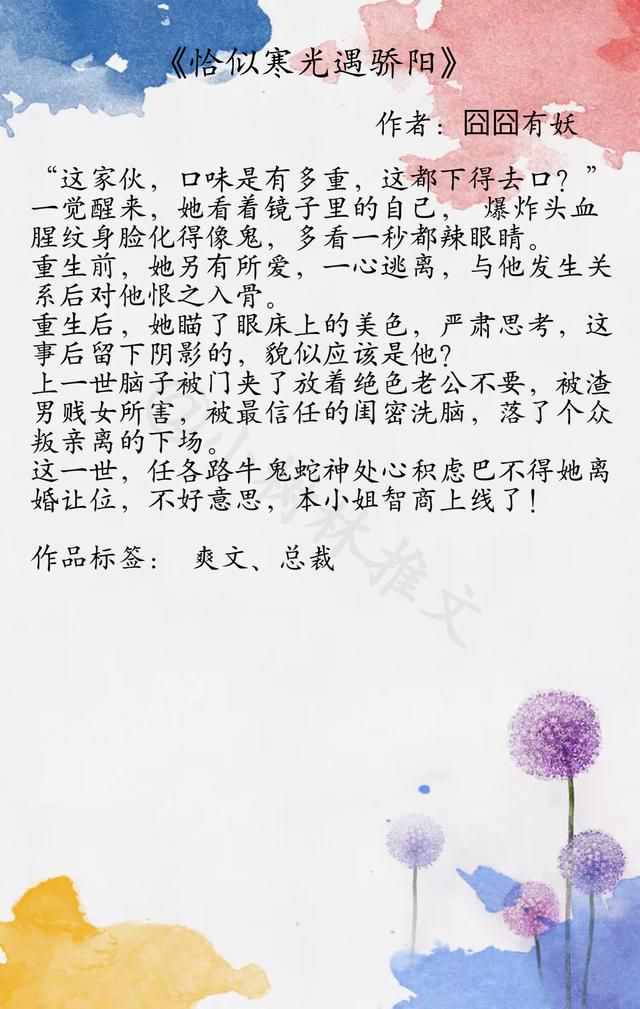 《恰似寒光遇骄阳》
作者：囧囧有妖
“这家伙，口味是有多重，这都下得去口？”
一觉醒来，她看着镜子里的自己， 爆炸头血
腥纹身脸化得像鬼，多看一秒都辣眼睛。
重生前，她另有所爱，一心逃离，与他发生关
系后对他恨之入骨。
重生后，她瞄了眼床上的美色，严肃思考，这
事后留下阴影的，貌似应该是他？
上一世脑子被门夹了放着绝色老公不要，被渣
男贱女所害，被最信任的闺密洗脑，落了个众
叛亲离的下场。
这一世，任各路牛鬼蛇神处心积虑巴不得她离
婚让位，不好意思，本小姐智商上线了！
作品标签： 爽文、总裁
@小树林推文